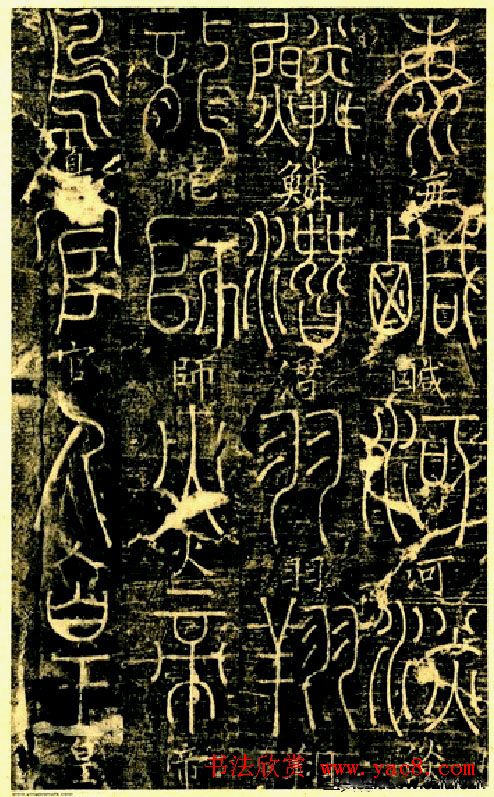 海鹹河淡
鱗潛羽翔
龍師火帝
鳥官人皇
书法欣赏 www.yac8.com